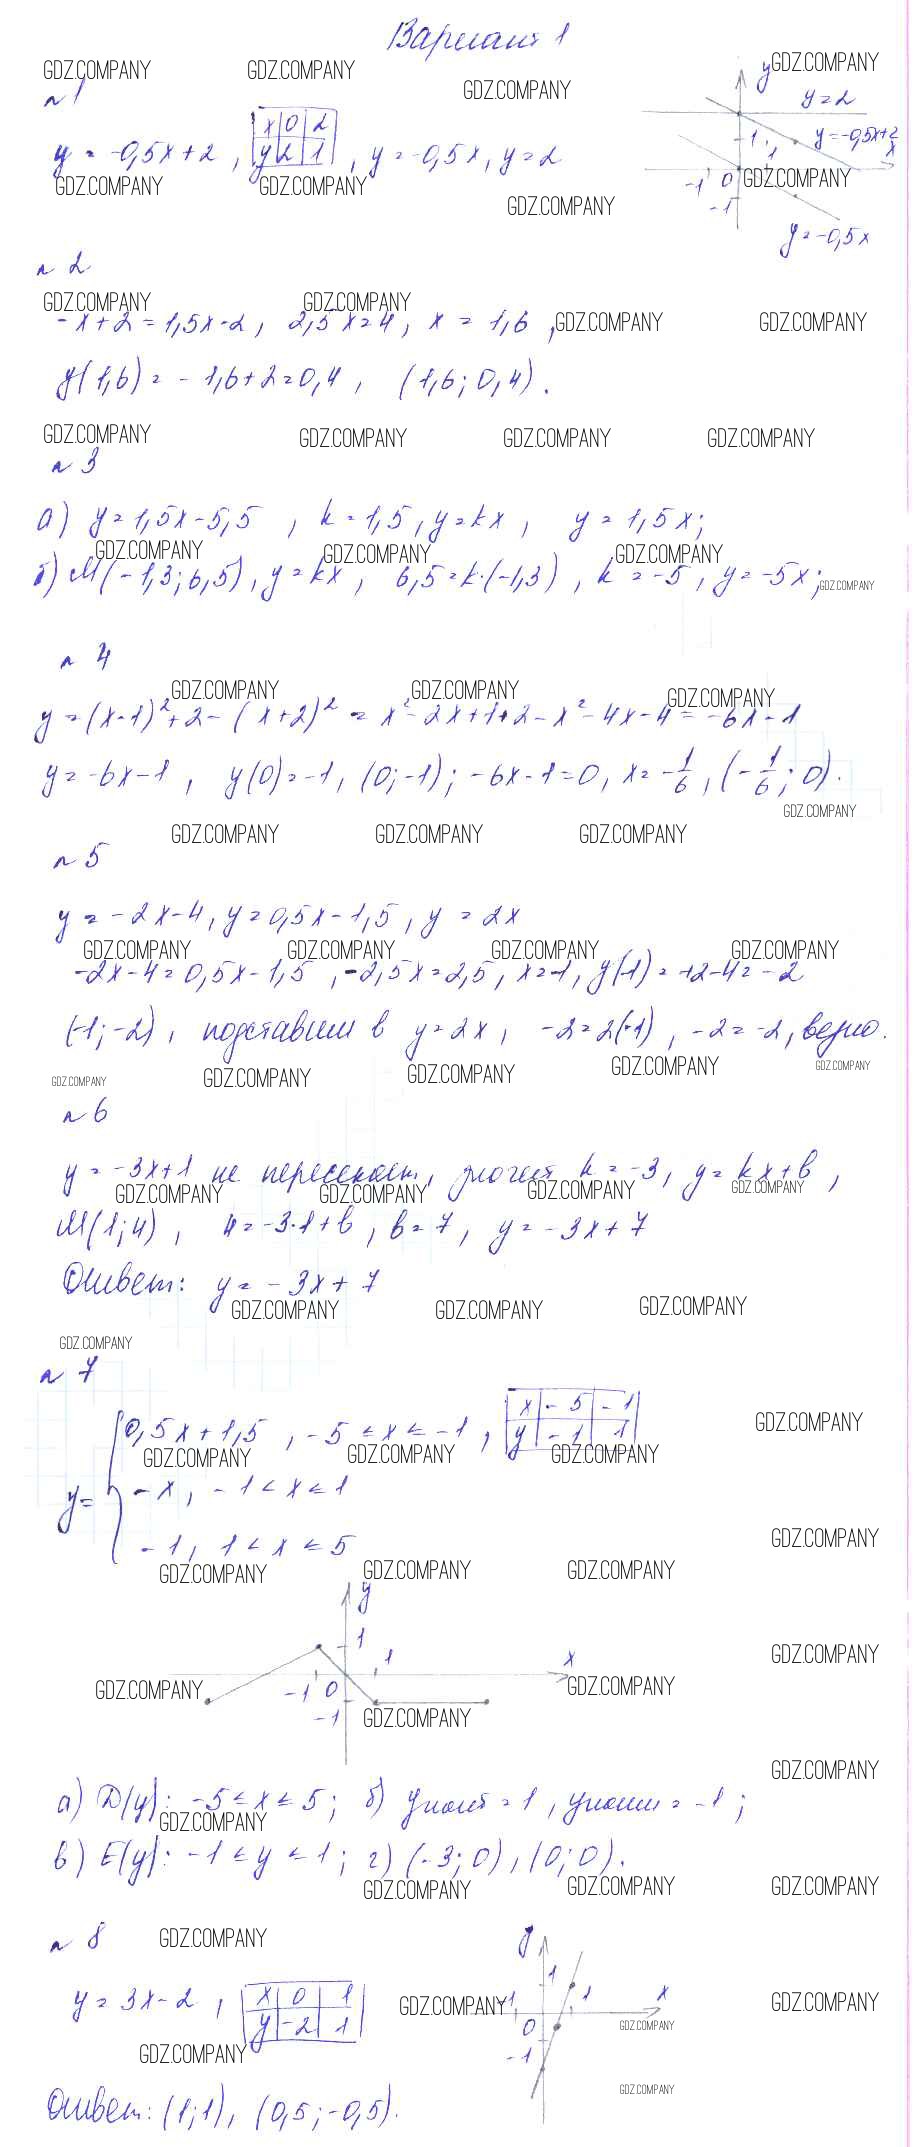 Вариант 1
GDZ.COMPANY GDZ.COMPANY GDZ.COMPANY GDZ.COMPANY
n 1
y = -0,5x+2, x 0 2, y = -0,5x, y = 2
y 2 1
y
y=2
y=-0,5x+2
x
1 1
-1 0
-1
y=-0,5x
GDZ.COMPANY GDZ.COMPANY GDZ.COMPANY GDZ.COMPANY
n 2
GDZ.COMPANY GDZ.COMPANY
-x+2=1,5x-2, 2,5x=4, x = 1,6, GDZ.COMPANY GDZ.COMPANY
y(1,6) = -1,6+2=0,4, (1,6; 0,4).
GDZ.COMPANY GDZ.COMPANY GDZ.COMPANY GDZ.COMPANY
n 3
а) y=1,5x-5,5, k=1,5, y=kx, y=1,5x;
GDZ.COMPANY GDZ.COMPANY GDZ.COMPANY
б) M(-1,3; 6,5), y=kx, 6,5=k·(-1,3), k=-5, y=-5x; GDZ.COMPANY
n 4
GDZ.COMPANY GDZ.COMPANY GDZ.COMPANY
y=(x-1)²+2-(x+2)² = x²-2x+1+2-x²-4x-4=-6x-1
y=-6x-1, y(0)=-1, (0;-1); -6x-1=0, x=-1/6, (-1/6; 0).
GDZ.COMPANY
GDZ.COMPANY GDZ.COMPANY GDZ.COMPANY
n 5
y=-2x-4, y=0,5x-1,5, y=2x
GDZ.COMPANY GDZ.COMPANY GDZ.COMPANY GDZ.COMPANY
-2x-4=0,5x-1,5, -2,5x=2,5, x=-1, y(-1)=+2-4=-2
(-1;-2), подставим в y=2x, -2=2(-1), -2=-2, верно.
GDZ.COMPANY GDZ.COMPANY GDZ.COMPANY GDZ.COMPANY GDZ.COMPANY
n 6
y=-3x+1 не пересекает, значит k=-3, y=kx+b,
GDZ.COMPANY GDZ.COMPANY GDZ.COMPANY GDZ.COMPANY
M(1;4), 4=-3·1+b, b=7, y=-3x+7
Ответ: y=-3x+7
GDZ.COMPANY GDZ.COMPANY GDZ.COMPANY
GDZ.COMPANY
n 7
0,5x+1,5, -5≤x≤-1, x -5 -1
y -1 1
GDZ.COMPANY GDZ.COMPANY GDZ.COMPANY GDZ.COMPANY
y= -x, -1<x≤1
-1, 1<x≤5
GDZ.COMPANY
GDZ.COMPANY GDZ.COMPANY GDZ.COMPANY
y
1 1 x
-1 0
-1
GDZ.COMPANY
GDZ.COMPANY GDZ.COMPANY GDZ.COMPANY
GDZ.COMPANY
а) D(y): -5≤x≤5; б) yнаиб=1, yнаим=-1;
GDZ.COMPANY
в) E(y): -1≤y≤1; г) (-3;0), (0;0).
GDZ.COMPANY GDZ.COMPANY GDZ.COMPANY
n 8
GDZ.COMPANY
y=3x-2, x 0 1
y -2 1
y
1
-1 1 x
0
-1
GDZ.COMPANY GDZ.COMPANY GDZ.COMPANY
GDZ.COMPANY
GDZ.COMPANY
Ответ: (1;1), (0,5;-0,5).